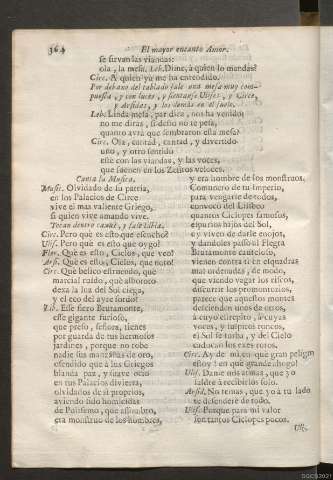 364 El mayor encanto Amor.
se sirvan las viandas:
ola, la mesa. Leb. Dime, à quien lo mandas?
Circ. A quien ya me ha entendido.
Por debaxo del tablado sale una mesa muy compuesta, y con luces, y sientanse Ulises, y Circe,
y Arsidas, y los demàs en el suelo.
Leb. Linda mesa, par diez, nos ha venido;
no me diràs, si desto no te pesa,
quanto avrà que sembraron essa mesa?
Circ. Ola, cantad, cantad, y divertido
uno, y otro sentido
estè con las viandas, y las voces,
que suenen en los Zefiros veloces.
Canta la Musica.
Music. Olvidado de su patria,
en los Palacios de Circe
vive el mas valiente Griego,
si quien vive amando vive.
Tocan dentro caxas, y sale Libia.
Circ. Pero què es esto que escucho?
Ulis. Pero què es esto que oygo?
Flor. Què es esto, Cielos, que veo?
Ars. Què es esto, Cielos, que noto?
Circ. Què belico estruendo, què
marcial ruido, què alboroto
dexa la luz del Sol ciega,
y el eco del ayre sordo?
Lib. Esse fiero Brutamonte,
esse gigante furioso,
que preso, señora, tienes
por guarda de tus hermosos
jardines, porque no robe
nadie sus manzanas de oro,
ofendido que à los Griegos
blanda paz, y suave ocio
en tus Palacios divierta,
olvidados de sì propios,
aviendo sido homicidas
de Polifemo, que assombro,
era monstruo de los hombres,
y era hombre de los monstruos.
Comunero de tu Imperio,
para vengarle de todos,
convocò del Lisboo
quantos Ciclopes famosos,
espurios hijos del Sol,
y viven de darle enojos,
y dandoles passo al Flegra
Brutamonte cauteloso,
vienen contra tì en esquadras
mal ordenadas, de modo,
que viendo vagar los riscos,
discurrir los promontorios,
parece que aquestos montes
decienden unos de otros,
à cuyo estrepito, à cuyas
voces, y suspiros roncos,
el Sol se turba, y del Cielo
caducan los exes rotos.
Circ. Ay de mì en què gran peligro
estoy! en què grande ahogo!
Ulis. Dame mis armas, que yo
saldrè à recibirlos solo.
Arsid. No temas, que yo à tu lado
te defenderè de todo.
Ulis. Porque para mi valor
son tantos Ciclopes pocos.
Ulis.